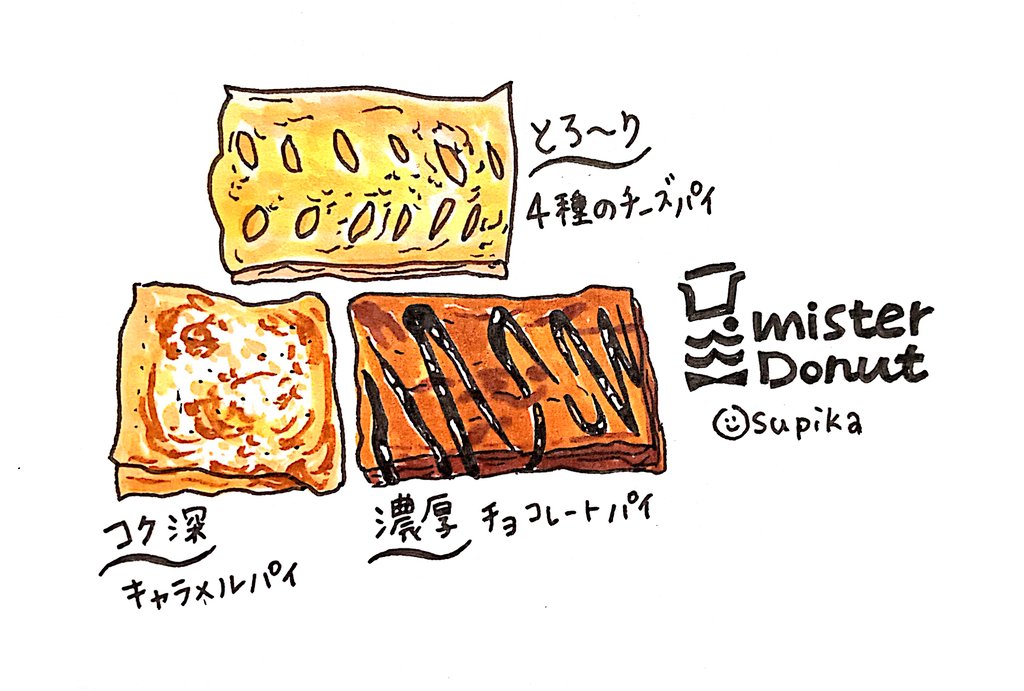 とろ〜り
4種のチーズパイ
mister
Donut
supika
コク深
キャラメルパイ
濃厚 チョコレートパイ